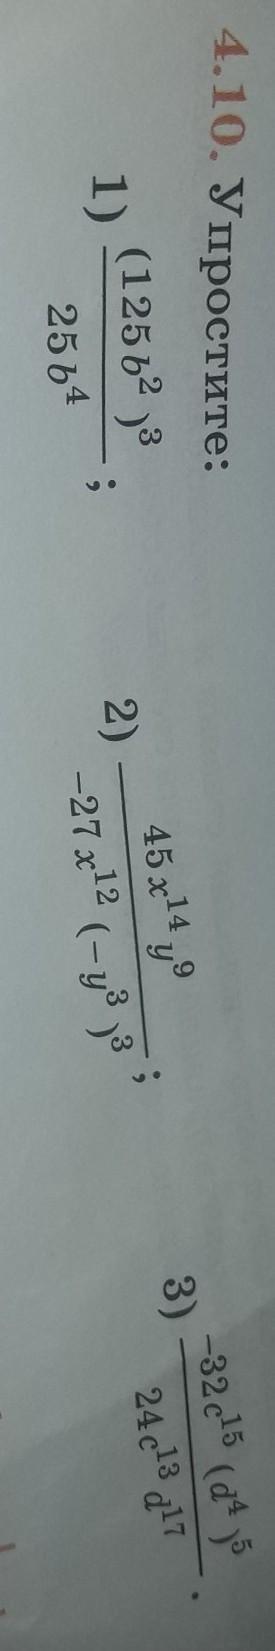 4.10. Упростите:
1) (125b²)³ / 25b⁴; 2) 45x¹⁴y⁹ / −27x¹²(−y³)³; 3) −32c¹⁵(d⁴)⁵ / 24c¹³d¹⁷.